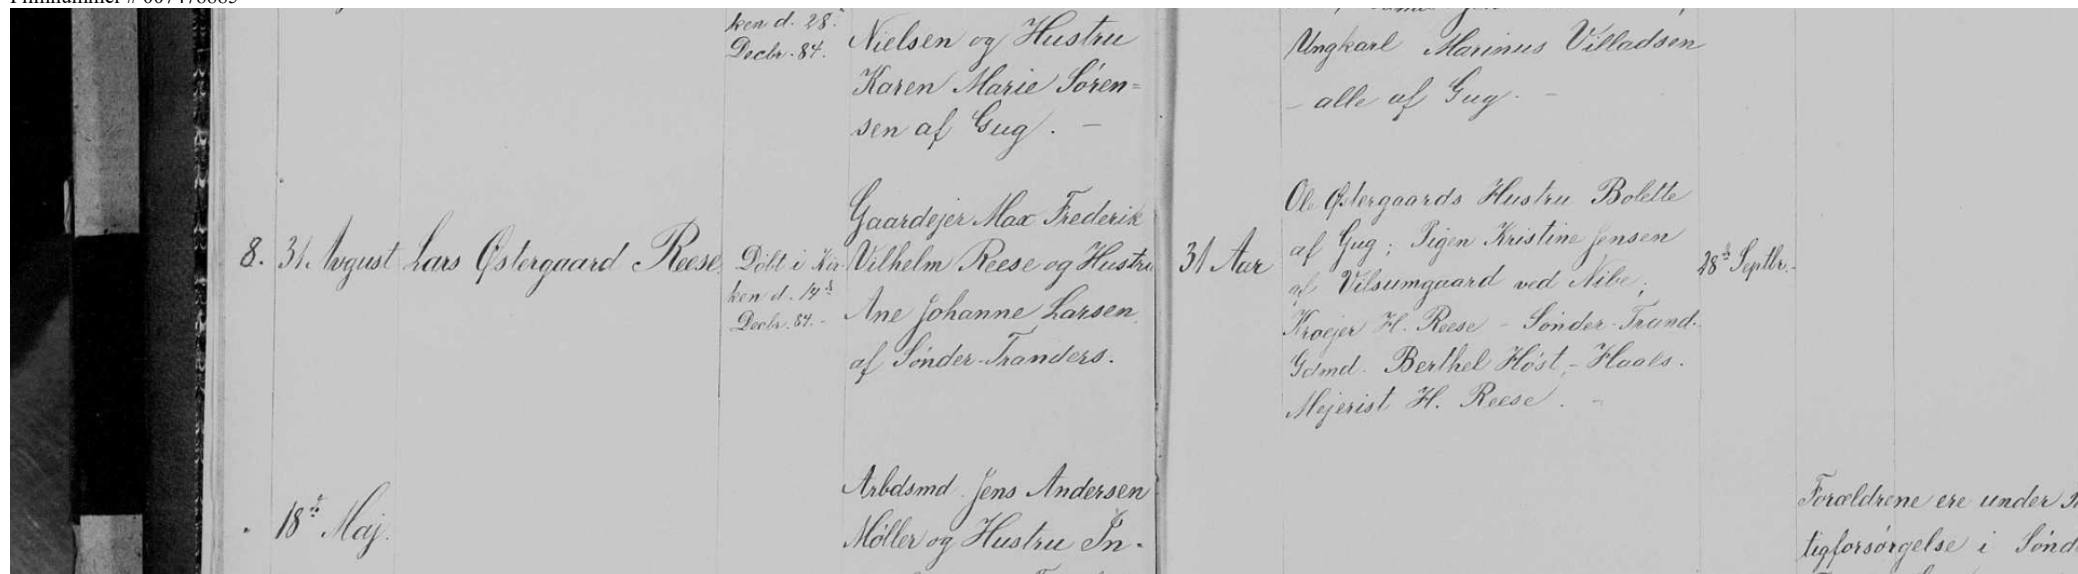 ken d. 28.
Decbr. 84.
Nielsen og Hustru
Karen Marie Sören=
sen af Gug. –
Ungkarl Marinus Villadsen
– alle af Gug. –
8. 31 Avgust Lars Østergaard Reese
Döbt i Kir-
ken d. 14de
Decbr. 84. -
Gaardejer Max Frederik
Vilhelm Reese og Hustru
Ane Johanne Larsen
af Sönder-Tranders.
31 Aar
Ole Østergaards Hustru Bolette
af Gug; Pigen Kristine Jensen
af Vilsumgaard ved Nibe,
Kroejer H. Reese – Sönder-Trand.
Gdmd. Berthel Höst, – Haals.
Mejerist H. Reese. –
28de Septbr.-
18de Maj.
Arbdsmd. Jens Andersen
Möller og Hustru In-
Forældrene ere under
tigforsörgelse i Sönd